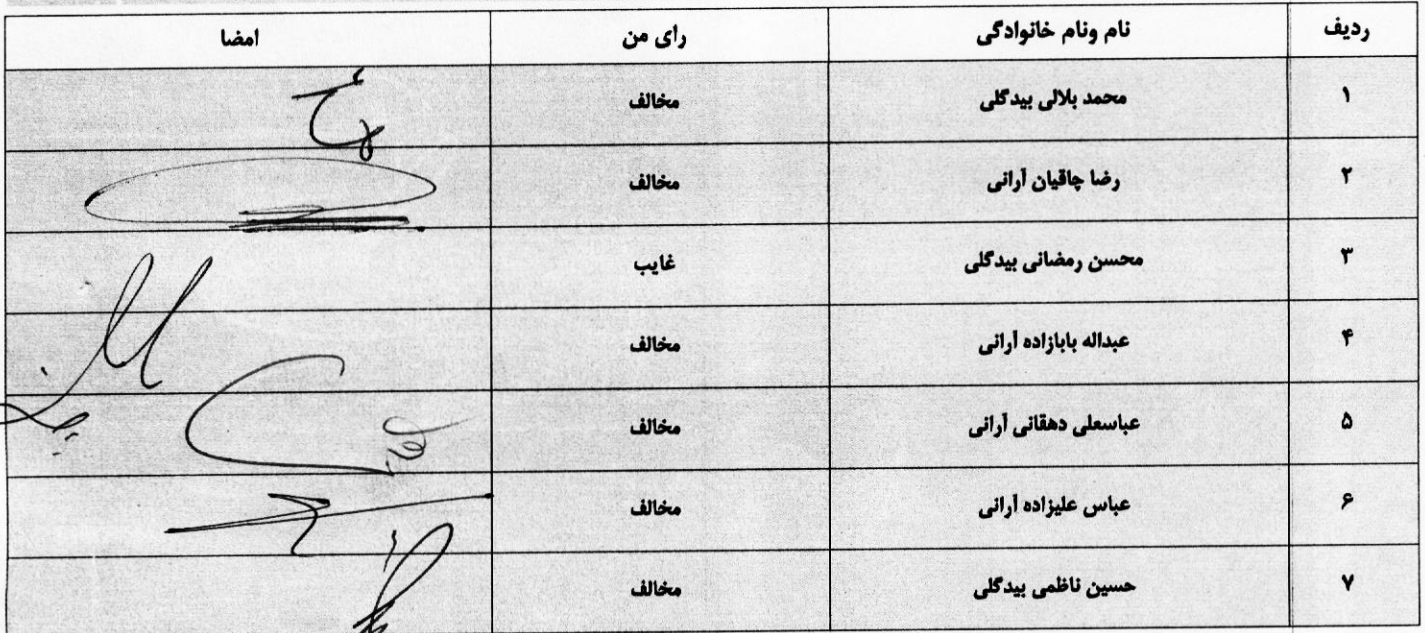 ردیف نام ونام خانوادگی رای من امضا
۱ محمد بلالی بیدگلی مخالف
۲ رضا چاقیان آرانی مخالف
۳ محسن رمضانی بیدگلی غایب
۴ عبداله بابازاده آرانی مخالف
۵ عباسعلی دهقانی آرانی مخالف
۶ عباس علیزاده آرانی مخالف
۷ حسین ناظمی بیدگلی مخالف